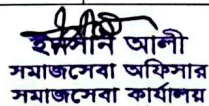 আলী
সমাজসেবা অফিসার
সমাজসেবা কার্যালয়